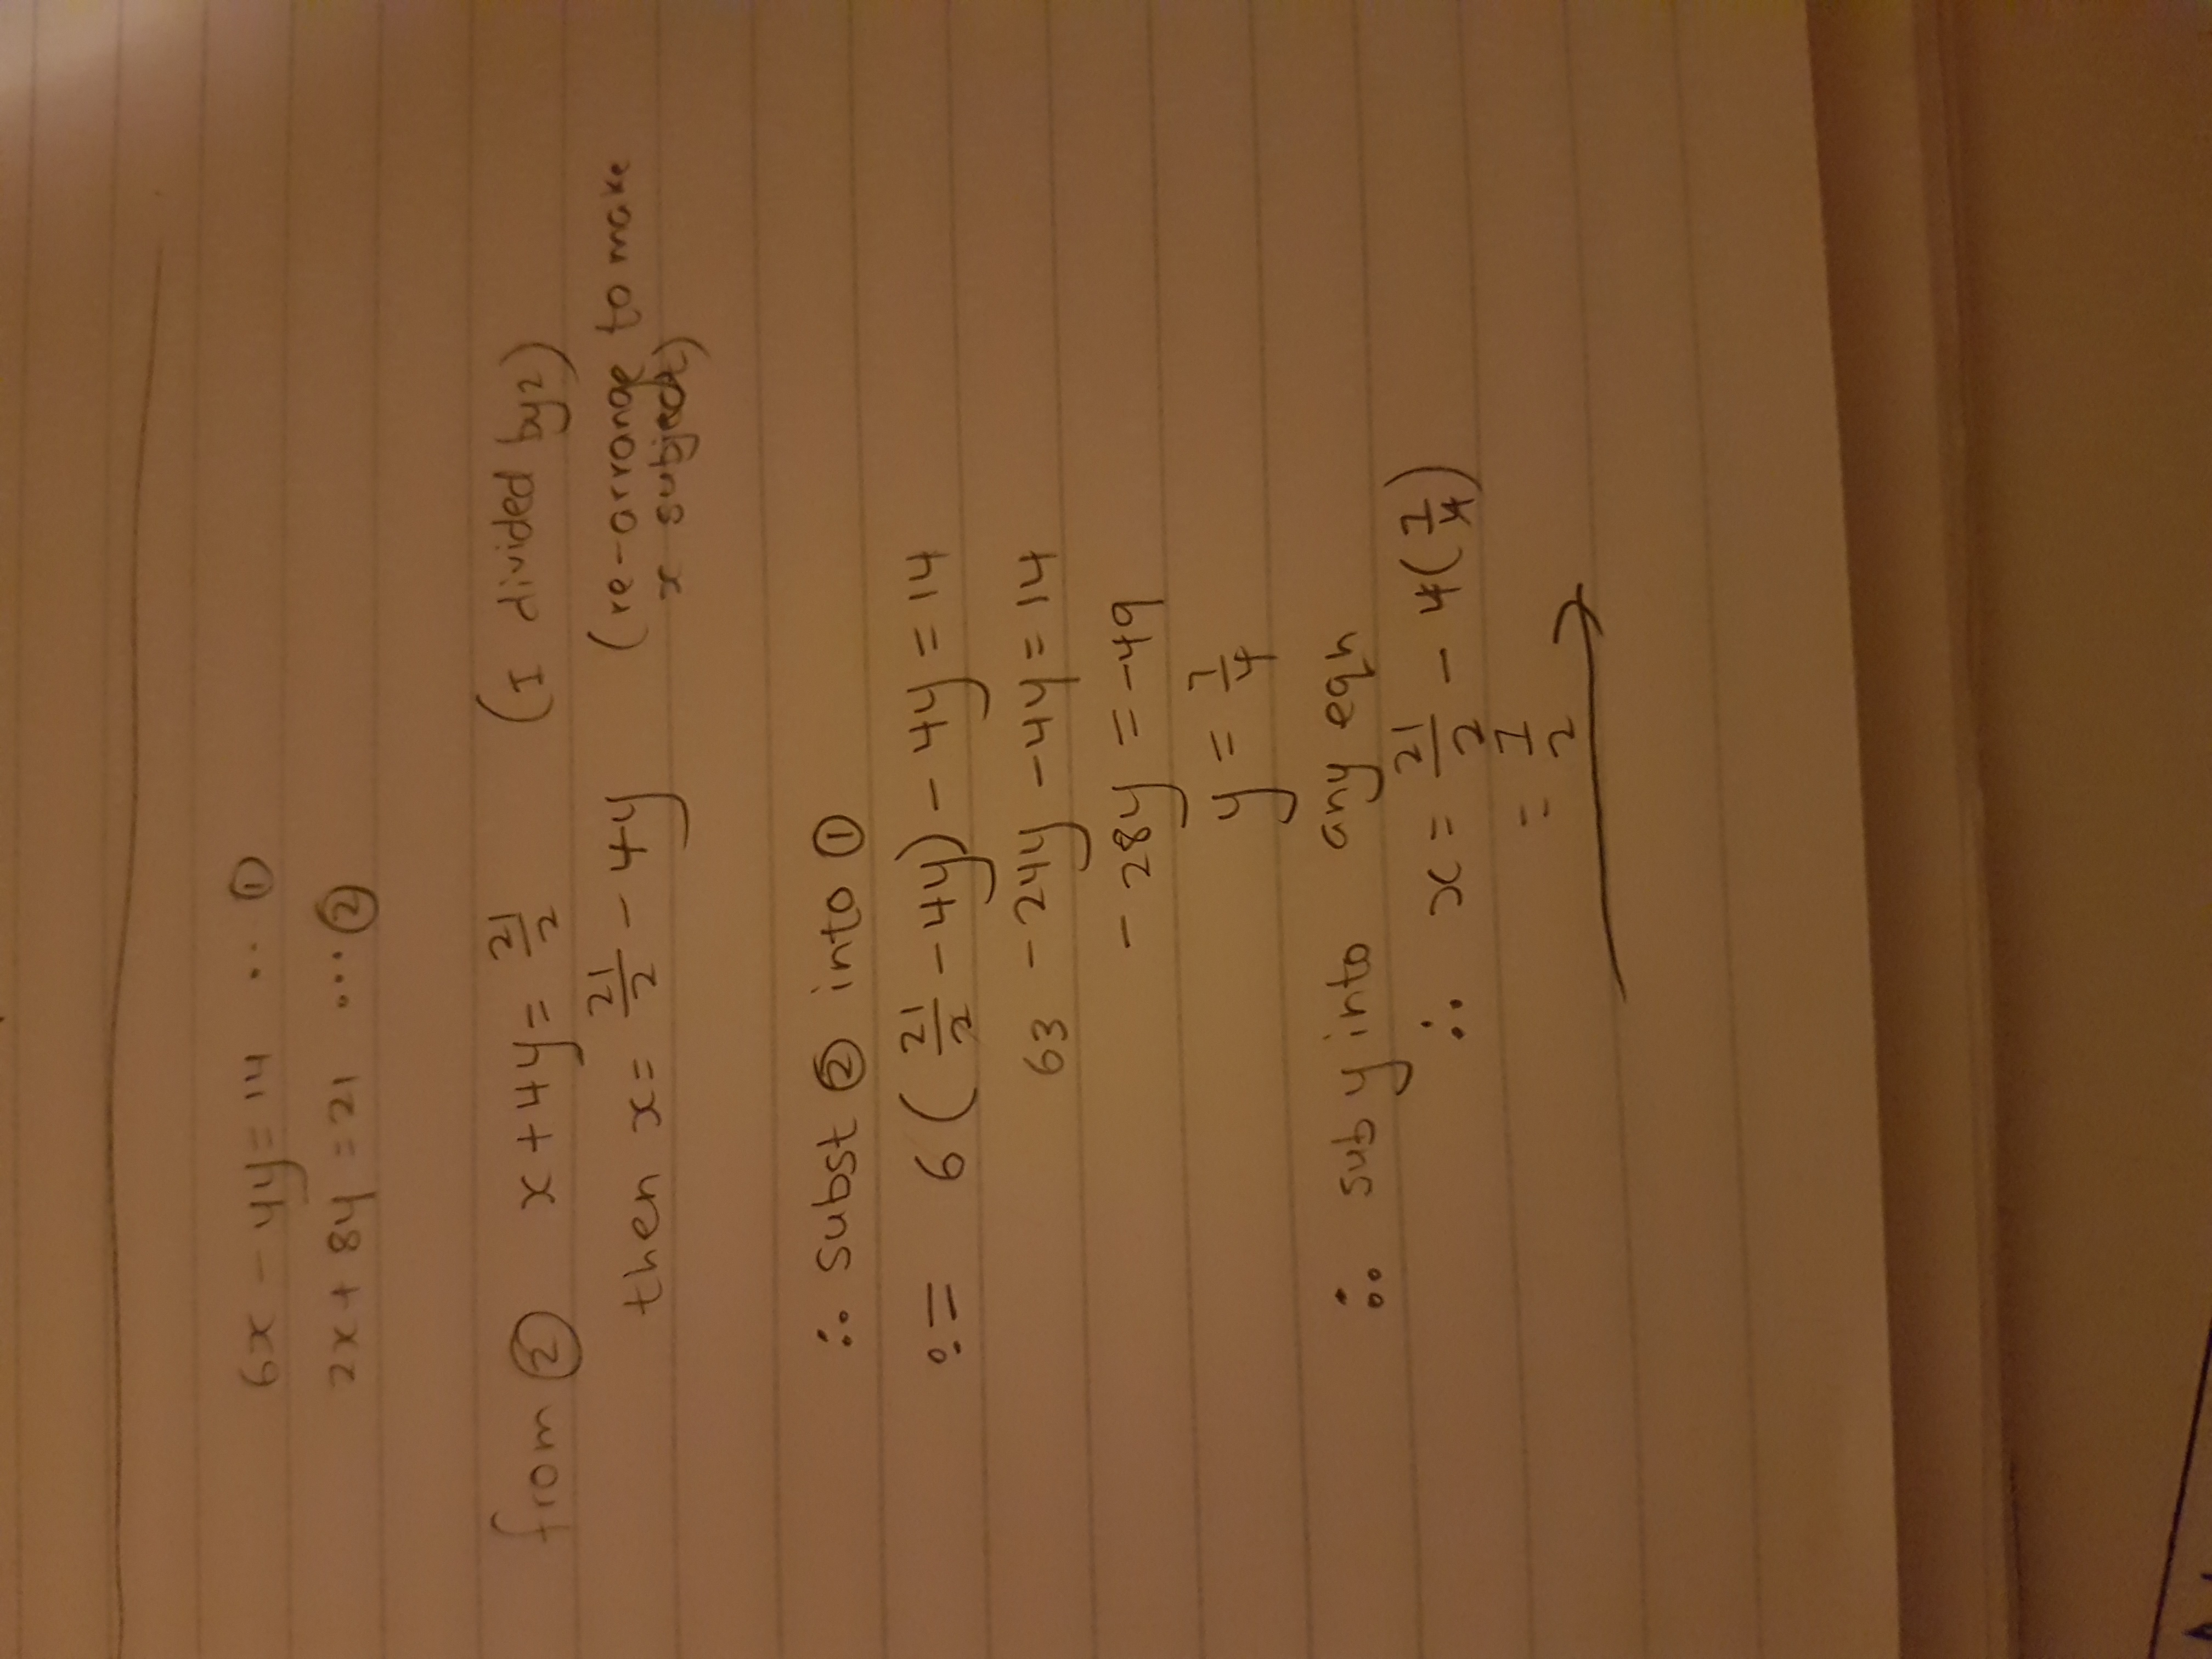 6x - 4y = 14 ... ①
2x + 8y = 21 ... ②
from ② x + 4y = 21/2 (I divided by 2)
then x = 21/2 - 4y (re-arrange to make
x subject)
∴ subst ② into ①
:= 6(21/2 - 4y) - 4y = 14
63 - 24y - 4y = 14
- 28y = -49
y = 7/4
∴ sub y into any eqn
∴ x = 21/2 - 4(7/4)
= 7/2